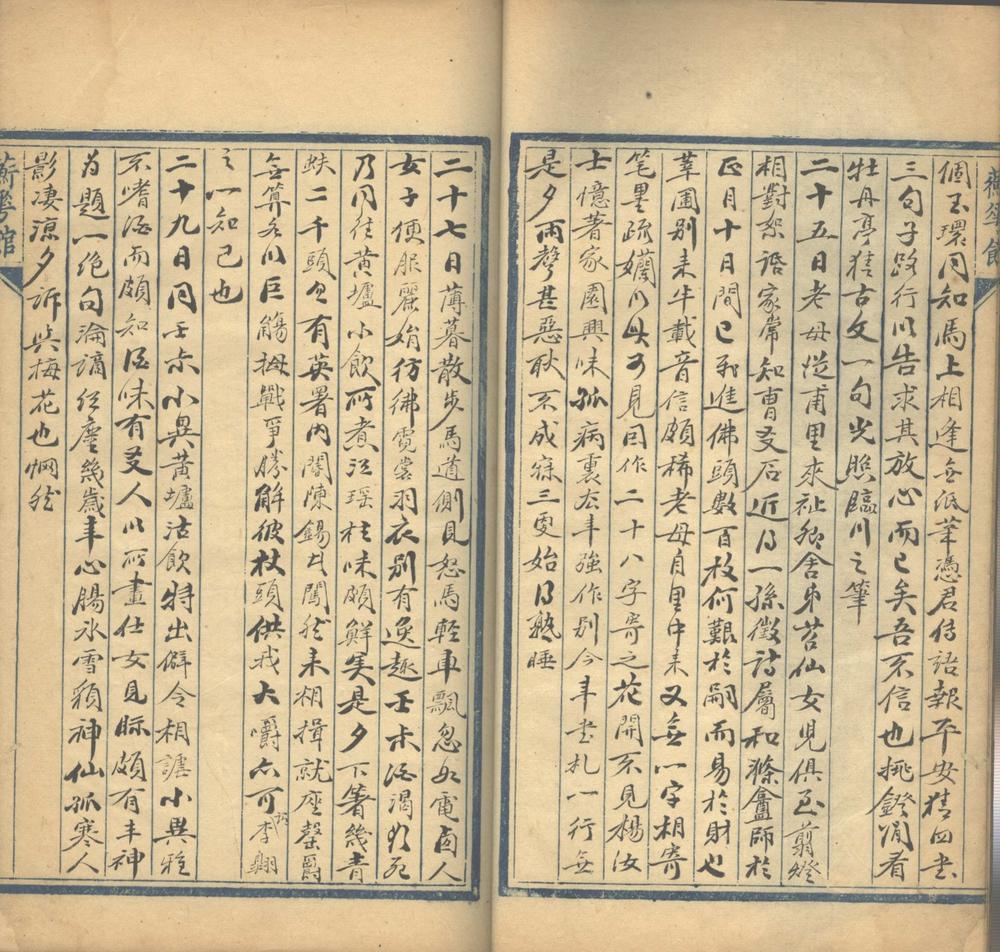 蘅華館
個玉環同知馬上相逢無紙筆憑君传語報平安猜四書
三句子路行以告求其放心而已矣吾不信也挑鐙閒看
牡丹亭猜古文一句光照臨川之筆
二十五日老母從甫里來祉卿舍弟苕仙女兒俱至剪燈
相對絮語家常知曹友石近得一孫徵詩屬和滌盦師於
正月十日間已弄進佛頭數百枚何艱於嗣而易於財也
莘圃別來半載音信頗稀老母自里中來又無一字相寄
笔墨疏嬾以此可見因作二十八字寄之花開不見楊汝
士憶著家園興味孤病裏去年強作別今年書札一行無
是夕雨聲甚惡耿不成寐三更始得熟睡
二十七日薄暮散步馬道側見怒馬輕車飄忽如電西人
女子便服麗娟彷彿霓裳羽衣別有逸趣壬叔酒渴欲死
乃同往黃壚小飲所煮江瑤柱味頗鮮美是夕下箸幾青
蚨二千頭有英署內閽陳錫闖然來相揖就座罄爵
無算各以巨觴拇戰爭勝解彼杖頭供我大嚼亦可李翺
之一知己也
二十九日同壬叔小異黃壚沽飲特出僻令相謔小異雅
不嗜酒而頗知酒味有友人以所畫仕女見眎頗有丰神
為題一絕句淪謫紅塵幾歲年心腸冰雪額神仙孤寒人
影淒涼夕訴與梅花也惘然
蘅華館